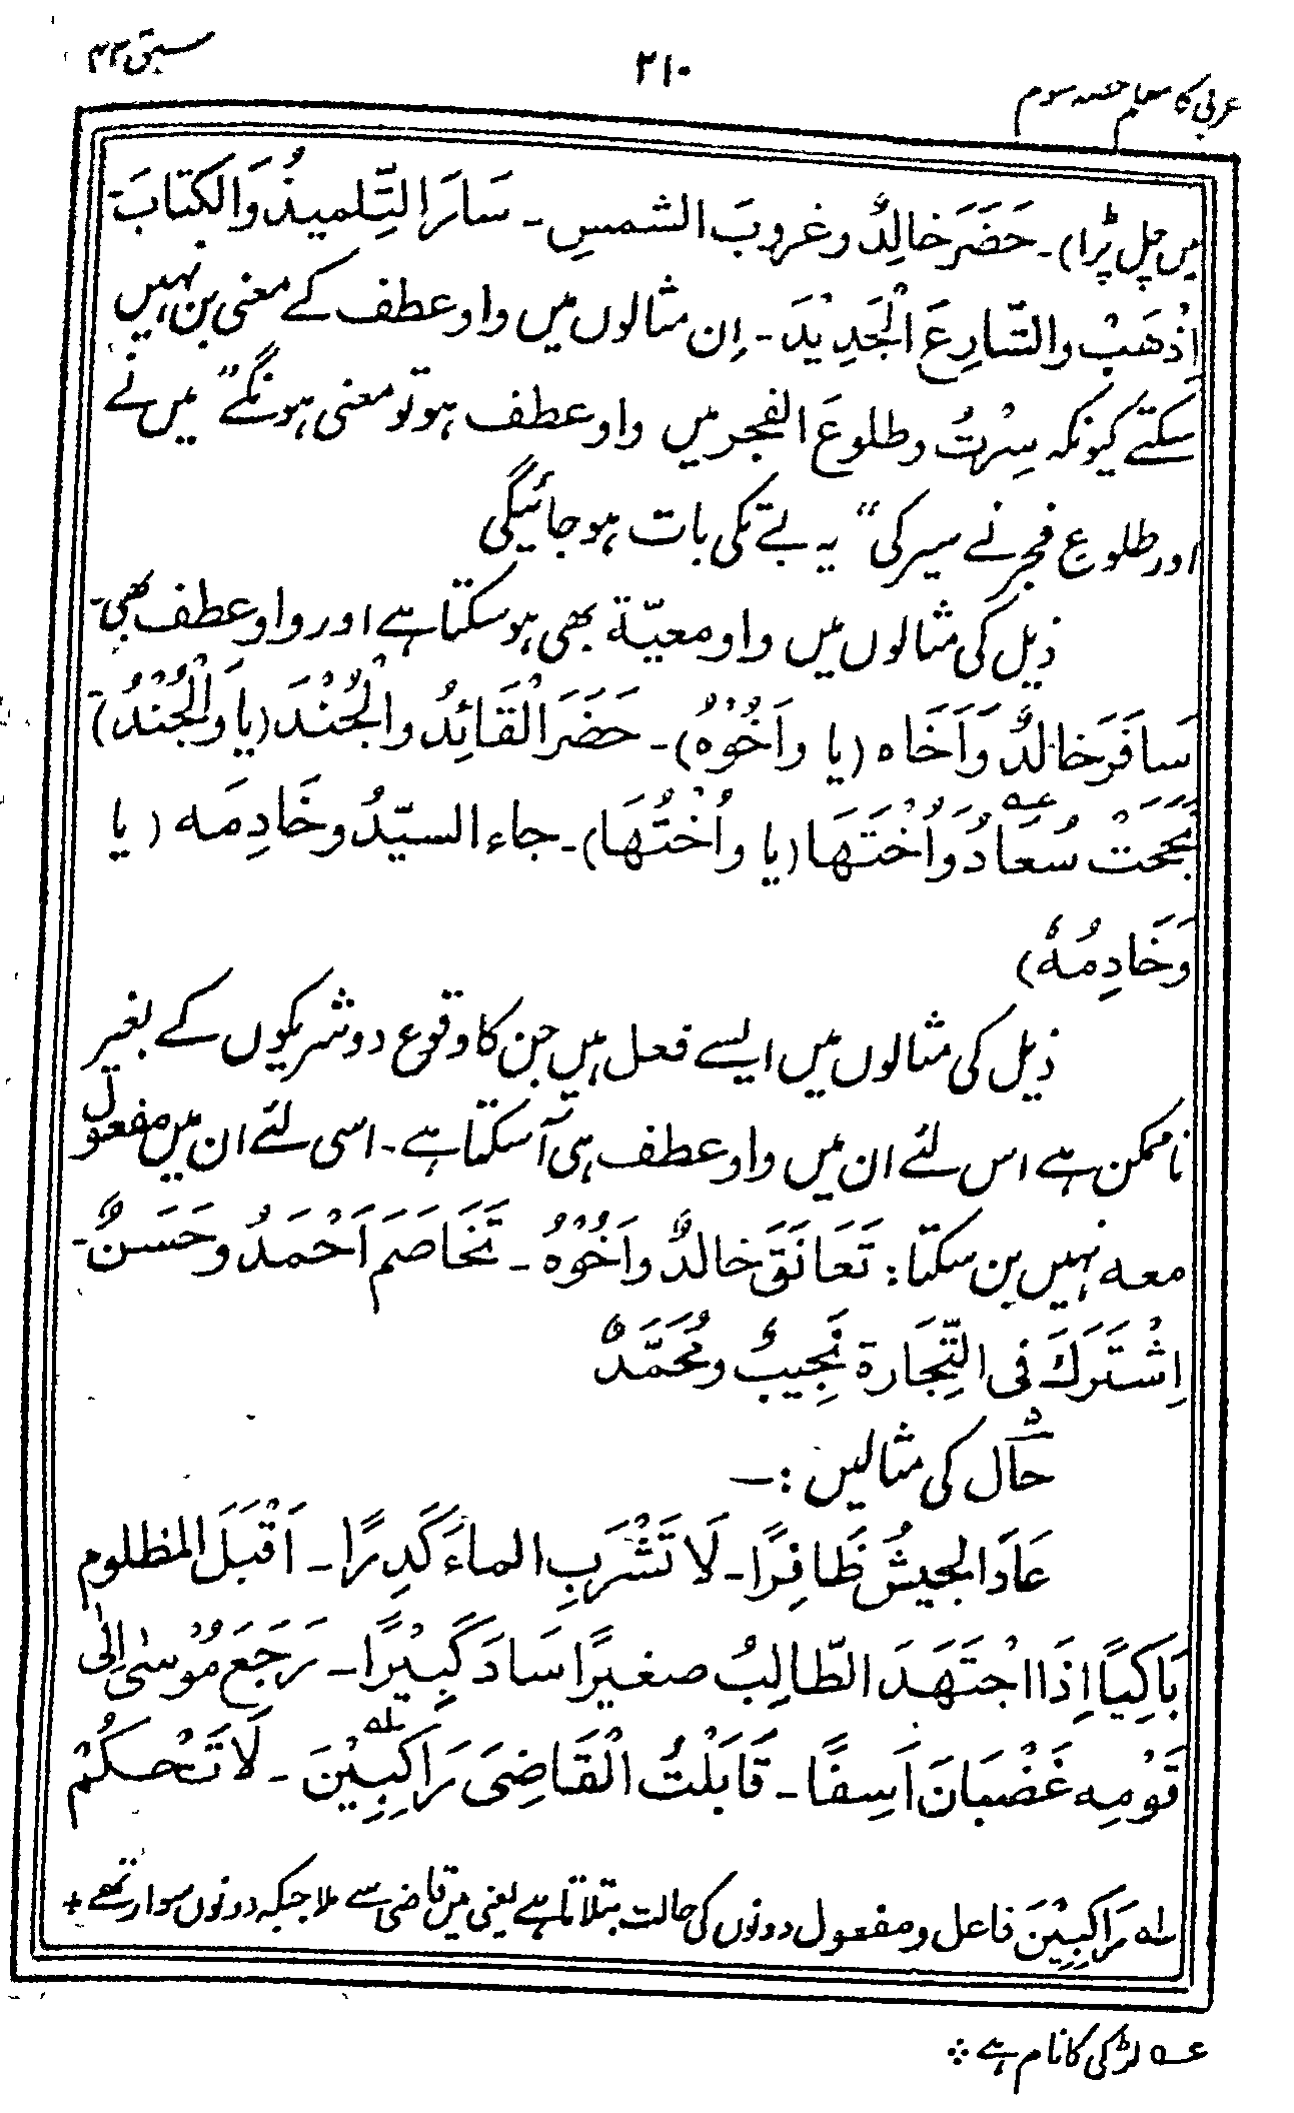 عربی کا معلم حصہ سوم
۲۱۰
سبق ۴۳
میں چل پڑا)۔ حَضَرَ خالِدٌ وغروبَ الشمسِ۔ سَارَ التِّلمیذُ وَالکتابَ۔
اِذْهَبْ والشّارِعَ الْجَدِیْدَ۔ اِن مثالوں میں واو عطف کے معنی بن نہیں
سکتے کیونکہ سِرْتُ وطلوعَ الفجر میں واو عطف ہو تو معنی ہونگے ”میں نے
اور طلوعِ فجر نے سیر کی“ یہ بے تکی بات ہو جائیگی
ذیل کی مثالوں میں واو معیّۃ بھی ہو سکتا ہے اور واو عطف بھی۔
سَافَرَ خالدٌ وَاَخَاہ (یا واَخُوْهُ)۔ حَضَرَ الْقَائِدُ والْجُنْدَ (یا والْجُنْدُ)۔
نَجَحَتْ سُعَادُ عہ وَاُخْتَهَا (یا واُخْتُهَا)۔ جاء السیّدُ وخَادِمَه (یا
وَخَادِمُهُ)
ذیل کی مثالوں میں ایسے فعل ہیں جن کا وقوع دو شریکوں کے بغیر
ناممکن ہے اس لئے ان میں واو عطف ہی آسکتا ہے۔ اسی لئے ان میں مفعول
معہ نہیں بن سکتا: تَعَانَقَ خالدٌ واَخُوْهُ۔ تَخَاصَمَ اَحْمَدُ وحَسَنٌ۔
اِشْتَرَكَ فی التِّجَارۃ نَجِیبٌ ومُحَمَّدٌ
حال کی مثالیں :۔
عَادَ الجیشُ ظَافِرًا۔ لَا تَشْرَبِ الماءَ کَدِرًا۔ اَقْبَلَ المظلوم
بَاکِیًا اِذَا اجْتَهَدَ الطّالِبُ صغیرًا سَادَ کَبِیْرًا۔ رَجَعَ مُوْسٰی اِلٰی
قَوْمِه غَضْبَانَ اَسِفًا۔ قَابَلْتُ الْقَاضِیَ رَاکِبِیْنَ لہ۔ لَا تَحْکُمْ
لہ رَاکِبِیْنَ فاعل و مفعول دونوں کی حالت بتلاتا ہے یعنی میں قاضی سے ملا جبکہ دونوں سوار تھے +
عہ لڑکی کا نام ہے